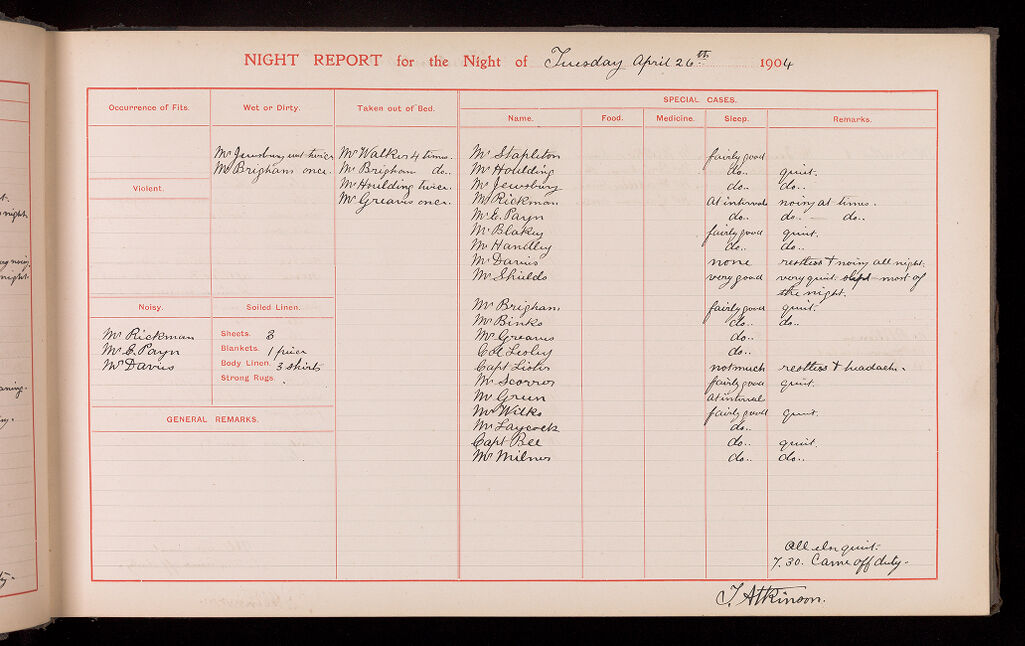 NIGHT REPORT for the Night of Tuesday April 26th 1904
Occurrence of Fits.
Wet or Dirty.
Mr Jewsbury wet twice
Mr Brigham once.
Taken out of Bed.
Mr Walker 4 times.
Mr Brigham do..
Mr Houlding twice.
Mr Greaves once.
Violent.
Noisy.
Mr Rickman
Mr E. Payn
Mr Davies
Soiled Linen.
Sheets. 3
Blankets. 1 piece
Body Linen. 3 shirts
Strong Rugs.
GENERAL REMARKS.
SPECIAL CASES.
Name. Food. Medicine. Sleep. Remarks.
Mr Stapleton fairly good
Mr Houlding do.. quiet.
Mr Jewsbury do.. do..
Mr Rickman At interval noisy at times.
Mr E. Payn do.. do. — do..
Mr Blakey fairly good quiet.
Mr Handley do.. do..
Mr Davies none restless + noisy all night.
Mr Shields very good very quiet. slept most of
the night.
Mr Brigham fairly good quiet.
Mr Binks do.. do..
Mr Greaves do..
Col Lesley do..
Capt not much restless + headache.
Mr fairly good quiet.
Mr Green At interval
Mr Wilks fairly good quiet.
Mr Laycock do..
Capt Bee do.. quiet.
Mr Milner do.. do..
All else quiet.
7.30. Came off duty.
T. Atkinson.